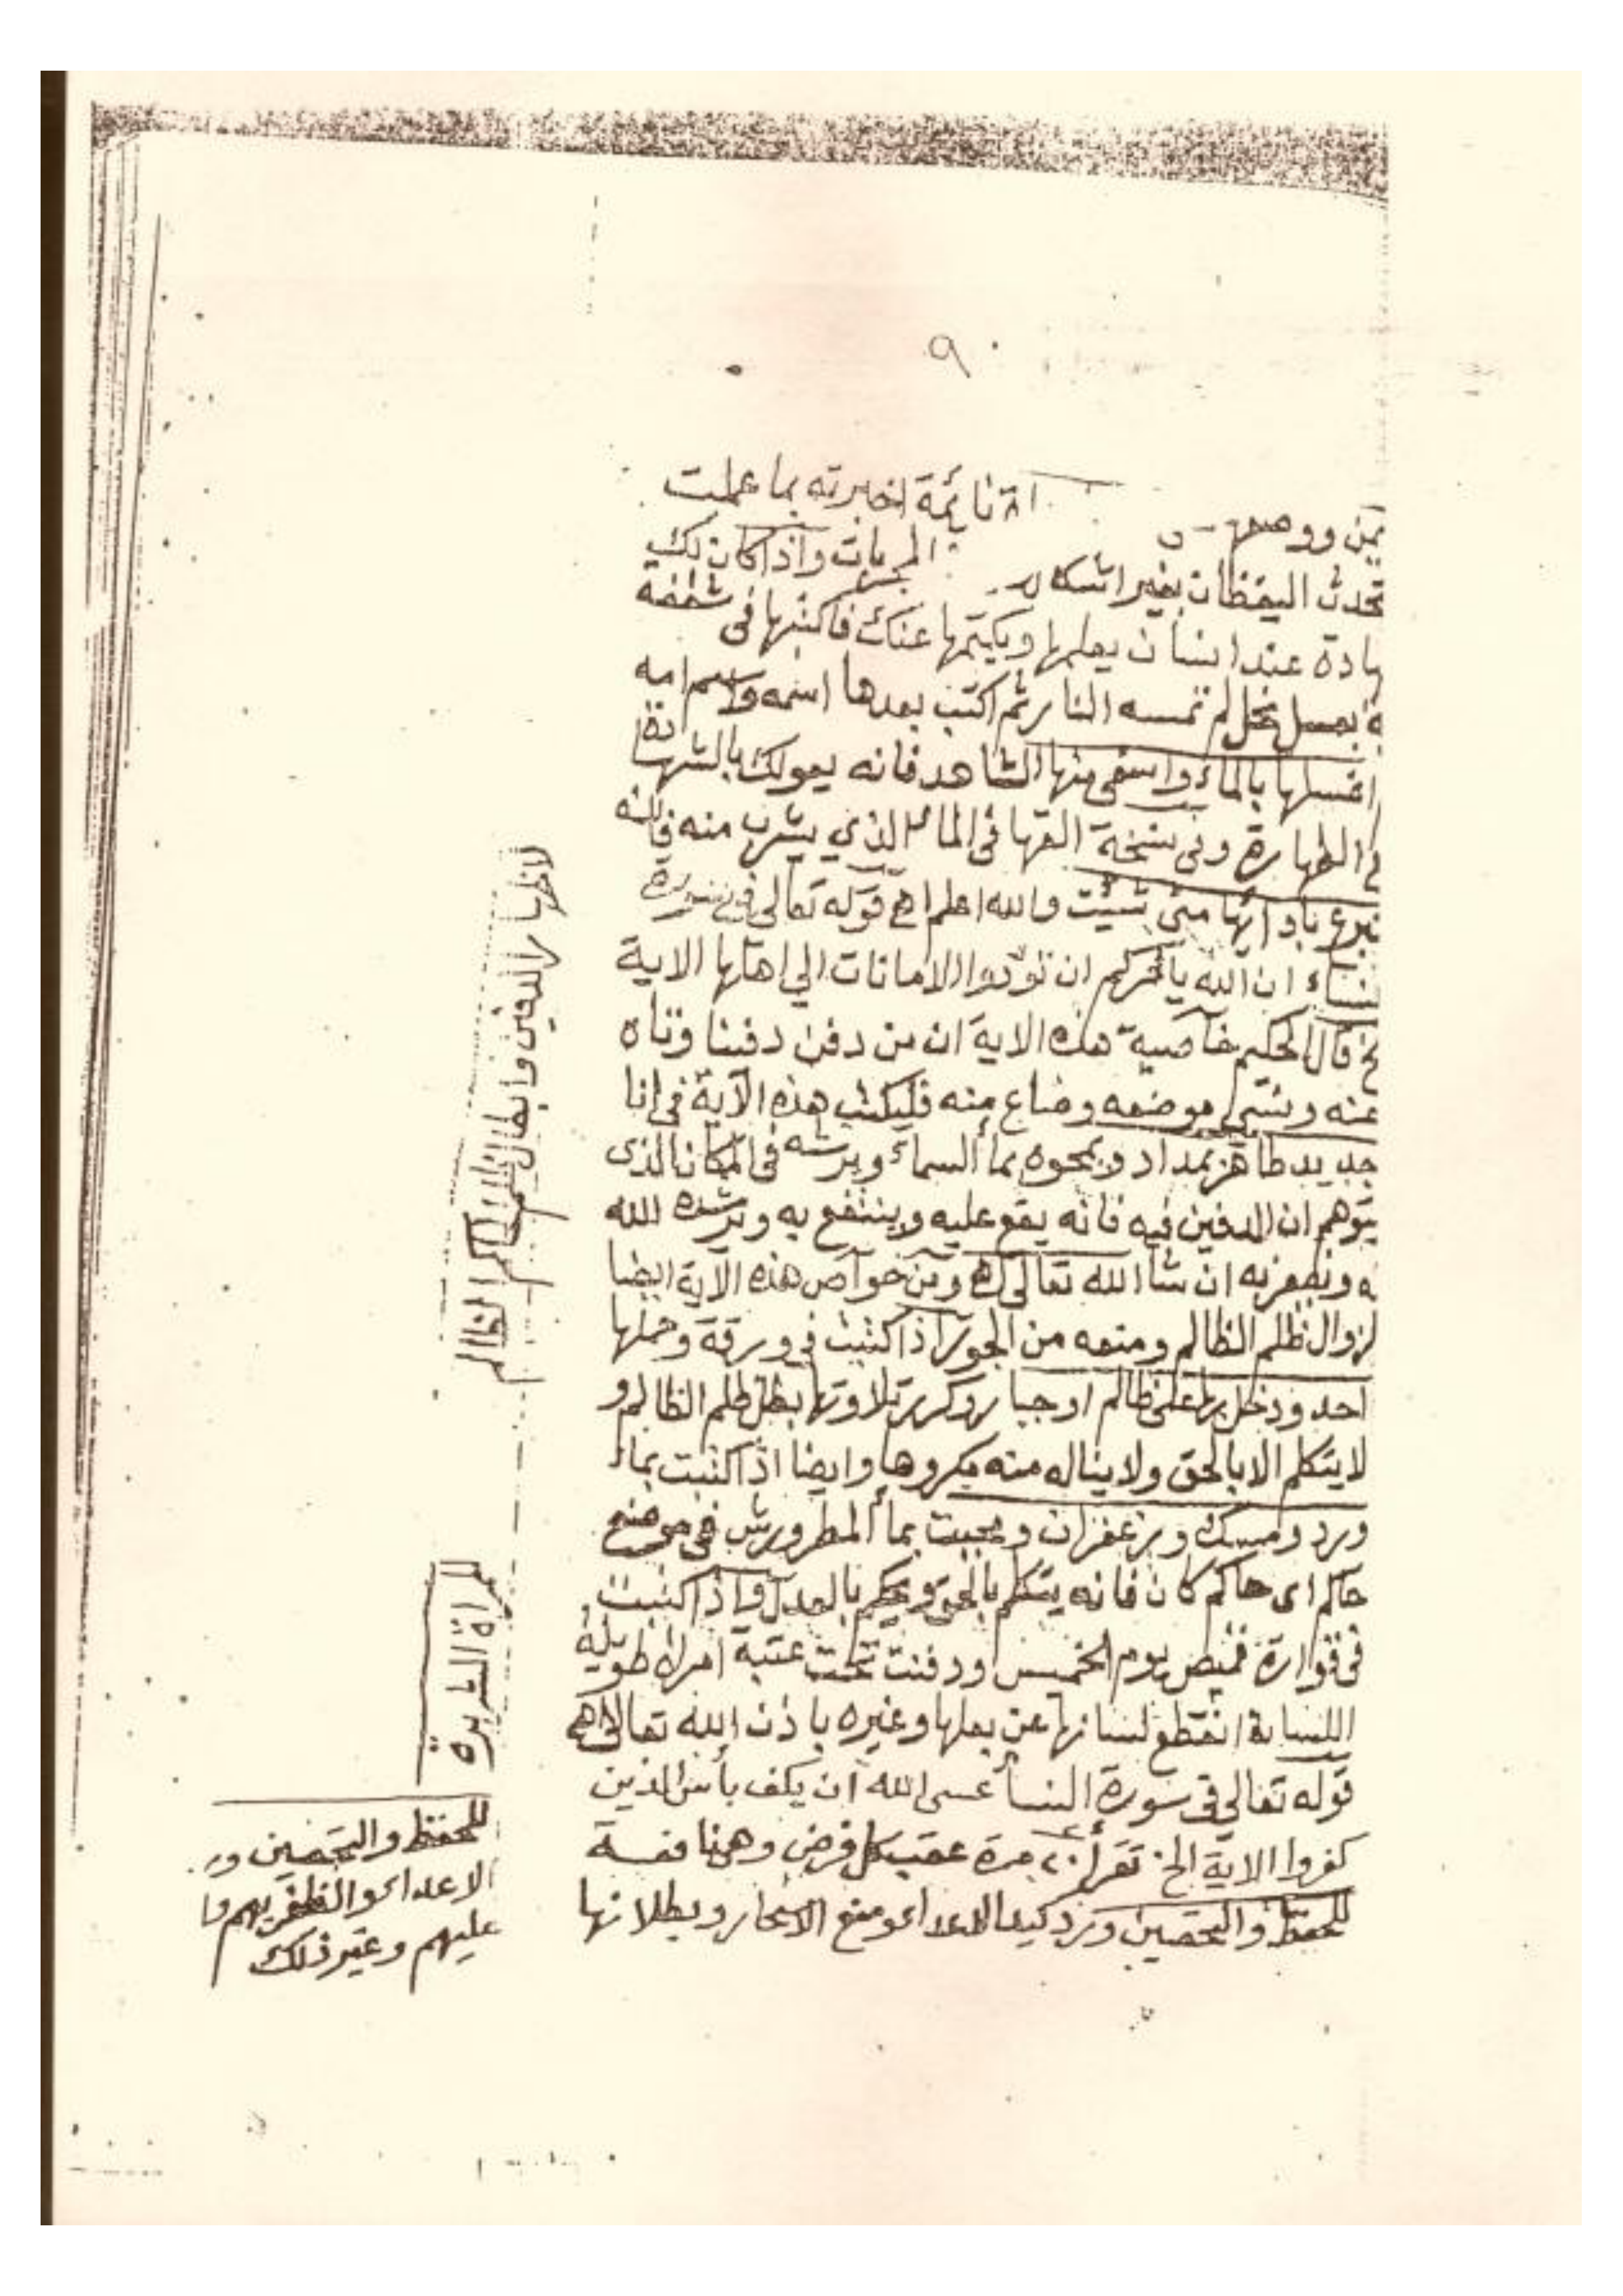 ٩٠
اة نائمة اخبرته بما عملت
تحدث اليقظان بغير اشكال
المجربات واذا كان لك
ادة عند انسان يعلمها ويكتمها عنك فاكتبها فى شقفة
بعسل نحل لم تمسه النار ثم اكتب بعدها اسمه واسم امه
اغسلها بالماء واسقى منها الشاهد فانه يعولك بالشهادة
الطهارة وفى نسخة القها فى الماء الذي يشرب منه فانه
متى شئت والله اعلم اهـ قوله تعالى فى سورة
النساء ان الله يأمركم ان تؤدوا الامانات الي اهلها الاية
الخ قال الحكيم خاصية هذه الاية ان من دفن دفنا وتاه
عنه ونسى موضعه وضاع منه فليكتب هذه الآية فى انا
جديد طاهر بمداد ويمحوه بما السماء ويرشه فى المكان الذى
يتوهم ان الدفين فيه فانه يقع عليه وينتفع به ويرشده الله
ه ويظفر به ان شا الله تعالى اهـ ومن خواص هذه الآية ايضا
لزوال ظلم الظالم ومنعه من الجور اذا كتبت فى ورقة وحملها
احد ودخل بها على ظالم او جبار وكرر تلاوتها بطل ظلم الظالم و
لا يتكلم الا بالحق ولا يناله منه مكروها وايضا اذا كتبت بماء
ورد ومسك وزعفران ومحيت بماء المطر ورش فى موضع
حاكم اى حاكم كان فانه يتكلم بالحق ويحكم بالعدل واذا كتبت
فى قوارة قميص يوم الخميس ودفنت تحت عتبة امراة طويلة
اللسانة انقطع لسانها عن بعلها وغيره باذن الله تعالى اهـ
قوله تعالى فى سورة النسأ عسى الله ان يكف بأس الذين
كفروا الاية الخ تقرأ ٢٠ مرة عقب كل فرض وهى نافعة
للحفظ والتحصين ورد كيد الاعداء ومنع الاسحار وبطلانها
لاظهار الدفين وابطال ظلم الحاكم الظالم
للمراة الشريرة
للحفظ والتحصين ور
الاعداء والظفر بهم وا
عليهم وغير ذلك